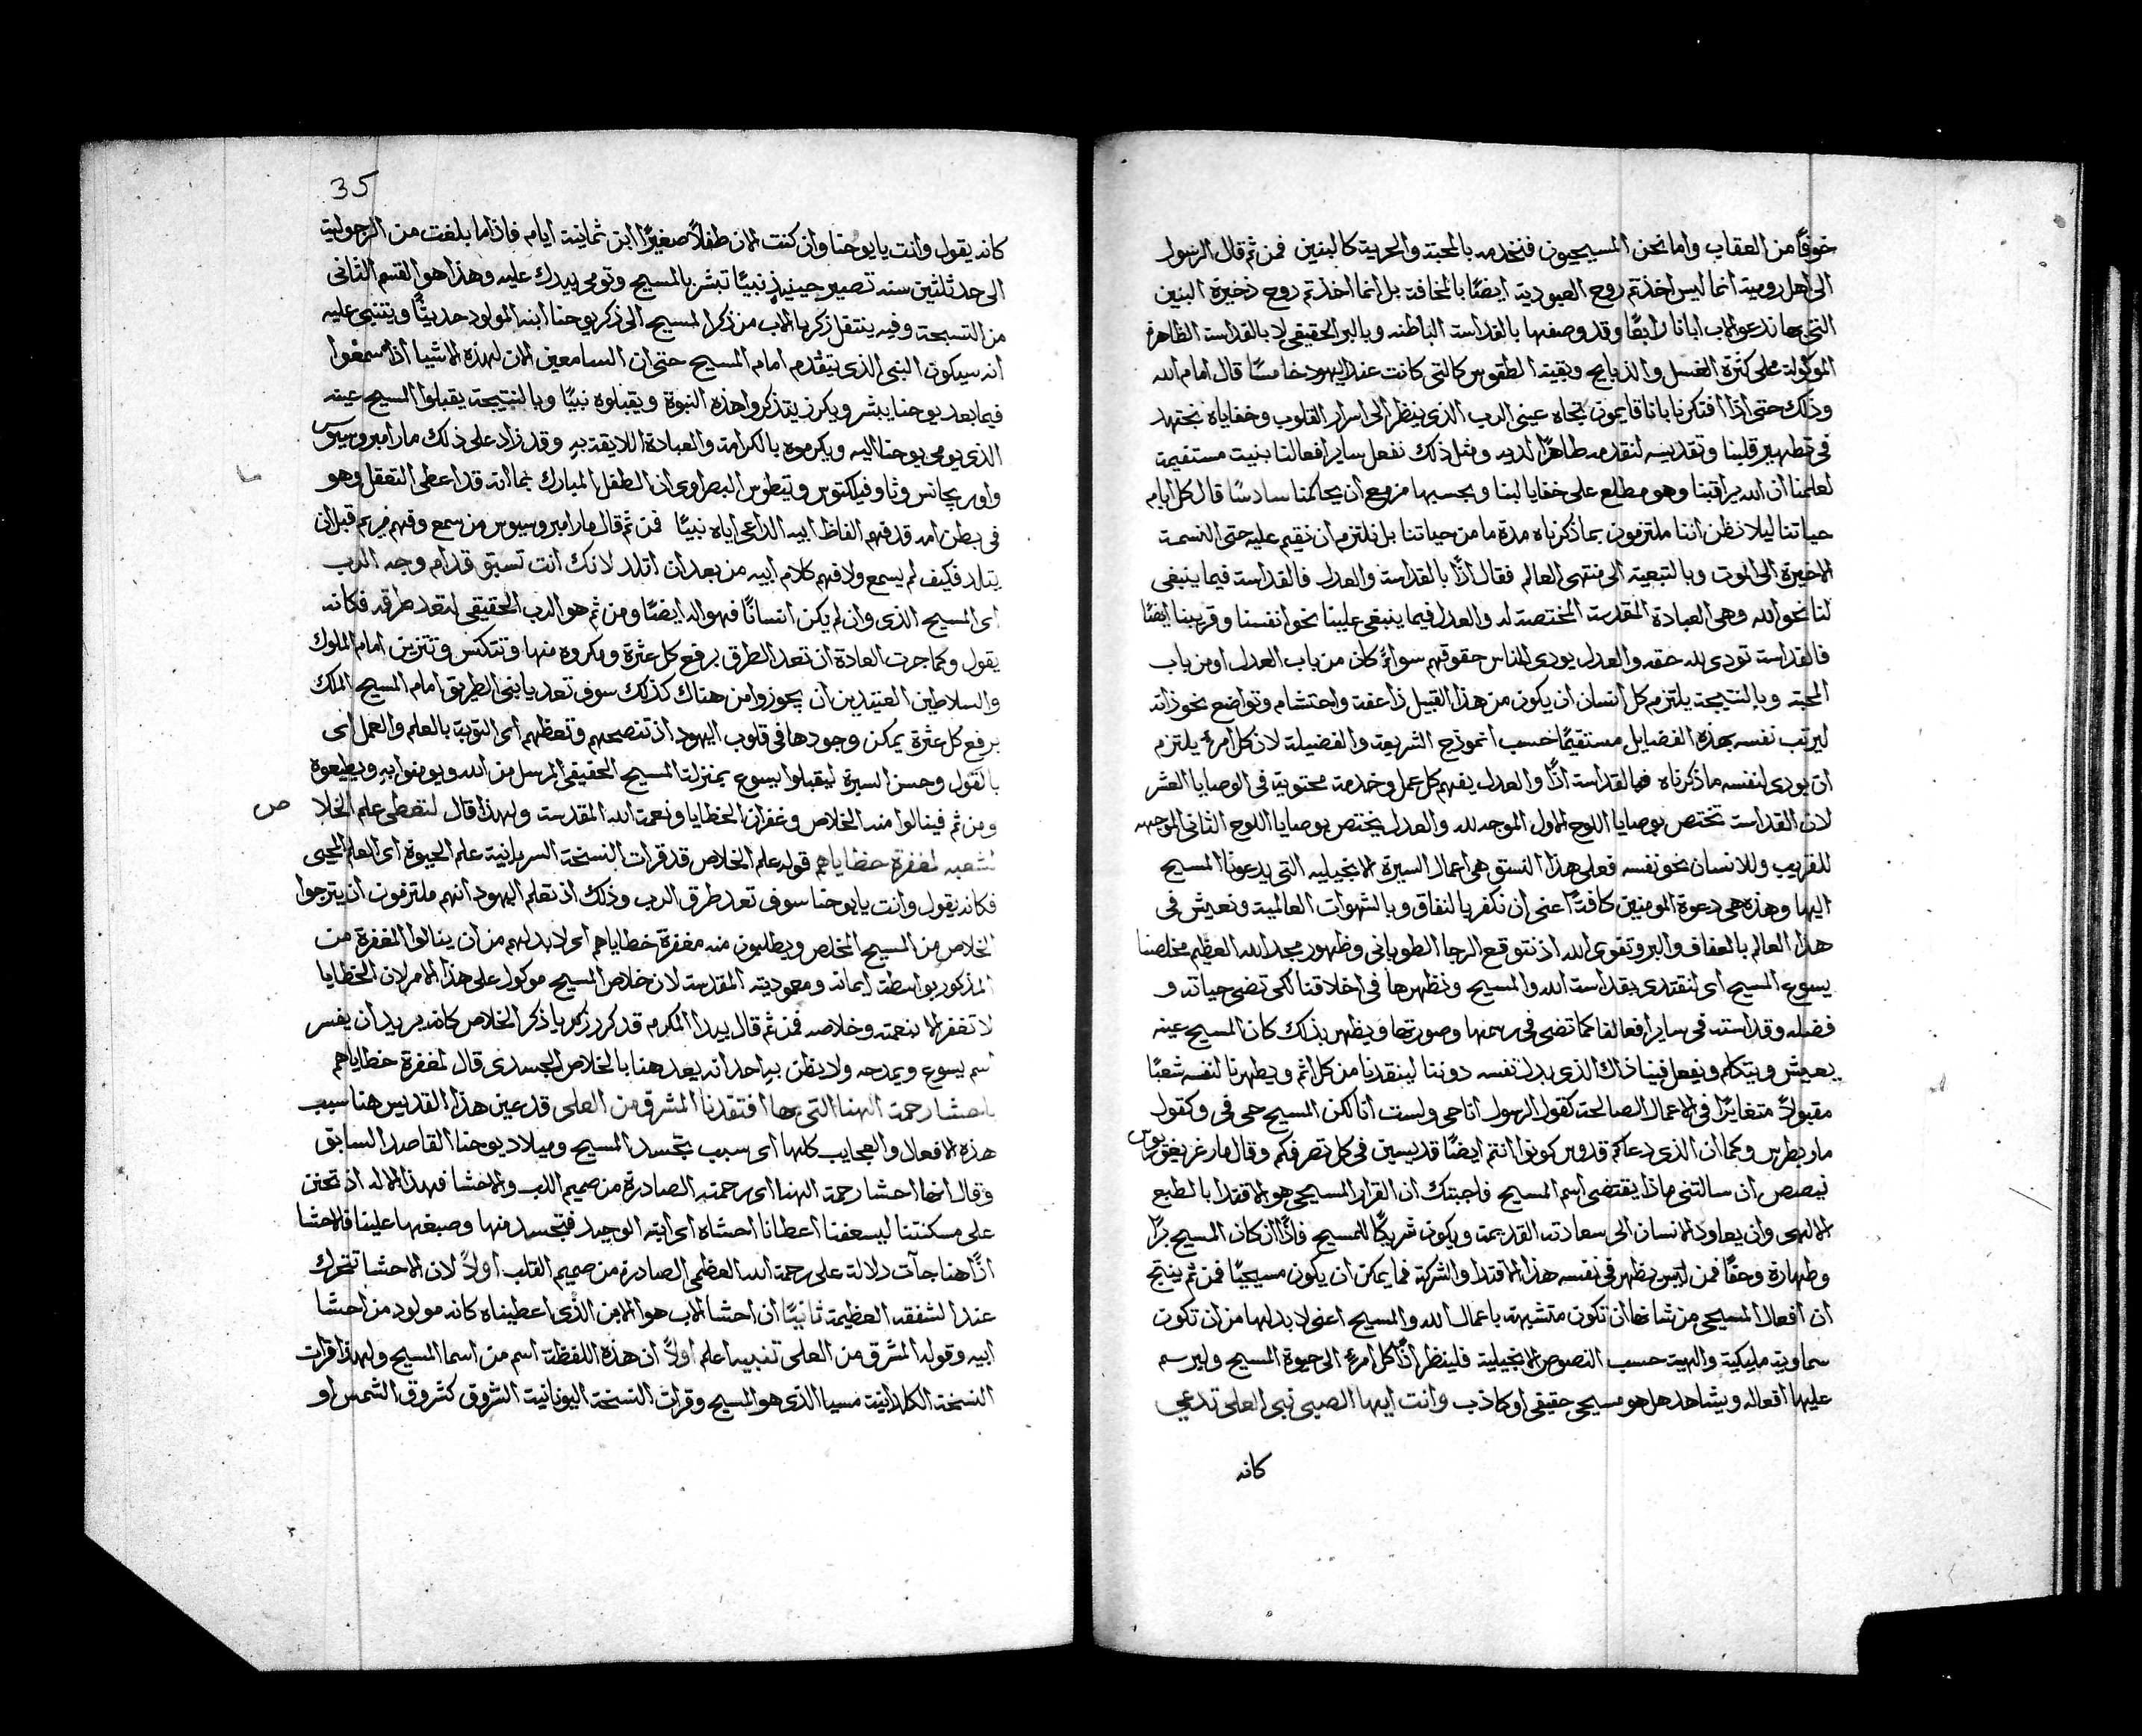 خوفًا من العقاب واما نحن المسيحيون فنخدمه بالمحبة والحرية كالبنين فمن ثم قال الرسول
الى اهل رومية انما ليس اخذتم روح العبودية ايضًا بالمخافة بل انما اخذتم روح ذخيرة البنين
التي بها ندعو الاب ابانا رابعًا وقد وصفها بالقداسة الباطنه وبالبر الحقيقي لا بالقداسة الظاهرة
الموكولة على كثرة الغسل والذبايح وبقية الطقوس كالتي كانت عند اليهود خامسًا قال امام الله
وذلك حتى اذا افتكرنا باننا قايمون تجاه عيني الرب الذي ينظر الى اسرار القلوب وخفاياه نجتهد
في تطهير قلبنا وتقديسه لنقدمه طاهرًا لديه ومثل ذلك نفعل ساير افعالنا بنيت مستقيمة
لعلمنا ان الله يراقبنا وهو مطلع على خفايا لبنا وبحسبها مزمع ان يحاكمنا سادسًا قال كل ايام
حياتنا ليلا نظن اننا ملتزمون بما ذكرناه مدة ما من حياتنا بل نلتزم ان نقيم عليه حتى النسمة
الاخيرة الى الموت وبالتبعية الى منتهى العالم فقال اذًا بالقداسة والعدل فالقداسة فيما ينبغي
لنا نحو الله وهي العبادة المقدسة المختصة له والعدل فيما ينبغي علينا نحو انفسنا وقريبنا ايضًا
فالقداسة تودي لله حقه والعدل يودي للناس حقوقهم سواءً كان من باب العدل او من باب
المحبة وبالنتيجة يلتزم كل انسان ان يكون من هذا القبيل ذا عفة واحتشام وتواضع نحو ذاته
ليرتب نفسه بهذه الفضايل مستقيمًا حسب انموذج الشريعة والفضيلة لان كل امرءٍ يلتزم
ان يودي لنفسه ما ذكرناه فبالقداسة اذًا والعدل يفهم كل عمل وخدمة محتوية في الوصايا العشر
لان القداسة تختص بوصايا اللوح الاول الموجه لله والعدل يختص بوصايا اللوح الثاني الموجهه
للقريب وللانسان نحو نفسه فعلى هذا النسق هي اعمال السيرة الانجيليه التي يدعونا المسيح
اليها وهذه هي دعوة المومنين كافةً اعني ان نكفر بالنفاق وبالشهوات العالمية ونعيش في
هذا العالم بالعفاف والبر وتقوى الله اذ نتوقع الرجا الطوباني وظهور مجد الله العظيم مخلصنا
يسوع المسيح اي لنقتدي بقداسة الله والمسيح ونظهرها في اخلاقنا لكي تضي حياته و
فضله وقداسته في ساير افعالنا كما تضي في رسمها وصورتها ويظهر بذلك كان المسيح عينه
يعيش ويتكلم ويفعل فينا ذاك الذي بدل نفسه دوننا لينقدنا من كل اثم ويطهرنا لنفسه شعبًا
مقبولاً متغايرًا في الاعمال الصالحة كقول الرسول انا حي ولست انا لكن المسيح حي في وكقول
مار بطرس وكما ان الذي دعاكم قدوس كونوا انتم ايضًا قديسين في كل تصرفكم وقال مار غريغوريوس
نيصص ان سالتني ماذا يقتضي اسم المسيح فاجبتك ان القرار المسيحي هو الاقتدا بالطبع
الالهي وان يعاود الانسان الى سعادته القديمة ويكون شريكًا للمسيح فاذًا ان كان المسيح برًا
وطهارة وحقًا فمن ليس يظهر في نفسه هذا الاقتدا والشركة فما يمكن ان يكون مسيحيًا فمن ثم ينتج
ان افعال المسيحي من شانها ان تكون متشبهة باعمال الله والمسيح اعني لا بد لها من ان تكون
سماوية مليكية والهية حسب النصوص الانجيلية فلينظر اذًا كل امرءٍ الى حيوة المسيح وليرسم
عليها افعاله ويشاهد هل هو مسيحي حقيقي او كاذب وانت ايها الصبي نبي العلي تدعي
كانه
35
كانه يقول وانت يا يوحنا وان كنت الان طفلاً صغيرًا ابن ثمانية ايام فاذا ما بلغت من الرجولية
الى حد ثلثين سنه تصير حينيذٍ نبيًا تبشر بالمسيح وتومي بيدك عليه وهذا هو القسم الثاني
من التسبحة وفيه ينتقل زكريا الاب من ذكر المسيح الى ذكر يوحنا ابنه المولود حديثًا ويتنبي عليه
انه سيكون النبي الذي يتقدم امام المسيح حتى ان السامعين الان لهذه الاشيا اذا سمعوا
فيما بعد يوحنا يبشر ويكرز يتذكروا هذه النبوة ويقبلوه نبيًا وبالنتيجة يقبلوا المسيح عينه
الذي يومي يوحنا اليه ويكرموه بالكرامة والعبادة اللايقة به وقد زاد على ذلك مار امبروسيوس
واوريجانس وثاوفيلكتوس وتيطوس البصراوي ان الطفل المبارك بما انه قد اعطي التعقل وهو
في بطن امه قد فهم الفاظ ابيه الداعي اياه نبيًا فمن ثم قال مار امبروسيوس من سمع وفهم مريم قبل ان
يتلد فكيف لم يسمع ولا فهم كلام ابيه من بعد ان اتلد لانك انت تسبق قدام وجه الرب
اي المسيح الذي وان لم يكن انسانًا فهو اله ايضًا ومن ثم هو الرب الحقيقي لتعد طرقه فكانه
يقول وكما جرت العادة ان تعد الطرق برفع كل عثرة ومكروه منها وتتكنس وتتزين امام الملوك
والسلاطين العتيدين ان يجوزوا من هناك كذلك سوف تعد يا بني الطريق امام المسيح الملك
برفع كل عثرة يمكن وجودها في قلوب اليهود اذ تنصحهم وتعظهم اي التوبة بالعلم والعمل اي
بالقول وحسن السيرة ليقبلوا يسوع بمنزلة المسيح الحقيقي المرسل من الله ويومنوا به ويطيعوه
ومن ثم فينالوا منه الخلاص وغفران الخطايا ونعمة الله المقدسة ولهذا قال لتعطي علم الخلا ص
لشعبه لمغفرة خطاياهم قوله علم الخلاص قد قرات النسخة السريانية علم الحيوة اي العلم المحيي
فكانه يقول وانت يا يوحنا سوف تعد طرق الرب وذلك اذ تعلم اليهود انهم ملتزمون ان يترجوا
الخلاص من المسيح المخلص ويطلبون منه مغفرة خطاياهم اي لا بد لهم من ان ينالوا المغفرة من
المذكور بواسطة ايمانه ومعموديته المقدسة لان خلاص المسيح موكول على هذا الامر لان الخطايا
لا تغفر الا بنعمته وخلاصه فمن ثم قال بيدا المكرم قد كرر زكريا ذكر الخلاص كانه يريد ان يفسر
اسم يسوع ويمدحه ولا يظن به احد انه يعد هنا بالخلاص الجسدي قال لمغفرة خطاياهم
باحشا رحمة الهنا التي بها افتقدنا المشرق من العلي قد عين هذا القديس هنا سبب
هذه الافعال والعجايب كلها اي سبب تجسد المسيح وميلاد يوحنا القاصد السابق
وقال انها احشا رحمة الهنا اي رحمته الصادرة من صميم اللب والاحشا فهذا الاله اذ تحنن
على مسكنتنا ليسعفنا اعطانا احشاه اي ابنه الوحيد فتجسد منها وصبغها علينا فالاحشا
اذًا هنا جآت دلالة على رحمة الله العظمى الصادرة من صميم القلب اولاً لان الاحشا تتحرك
عند الشفقه العظيمة ثانيًا ان احشا الاب هو الابن الذي اعطيناه كانه مولود من احشا
ابيه وقوله المشرق من العلي تنبيه اعلم اولاً ان هذه اللفظة اسم من اسما المسيح ولهذا قرات
النسخة الكلدانية مسيا الذي هو المسيح وقرات النسخة اليونانية الشروق كشروق الشمس او